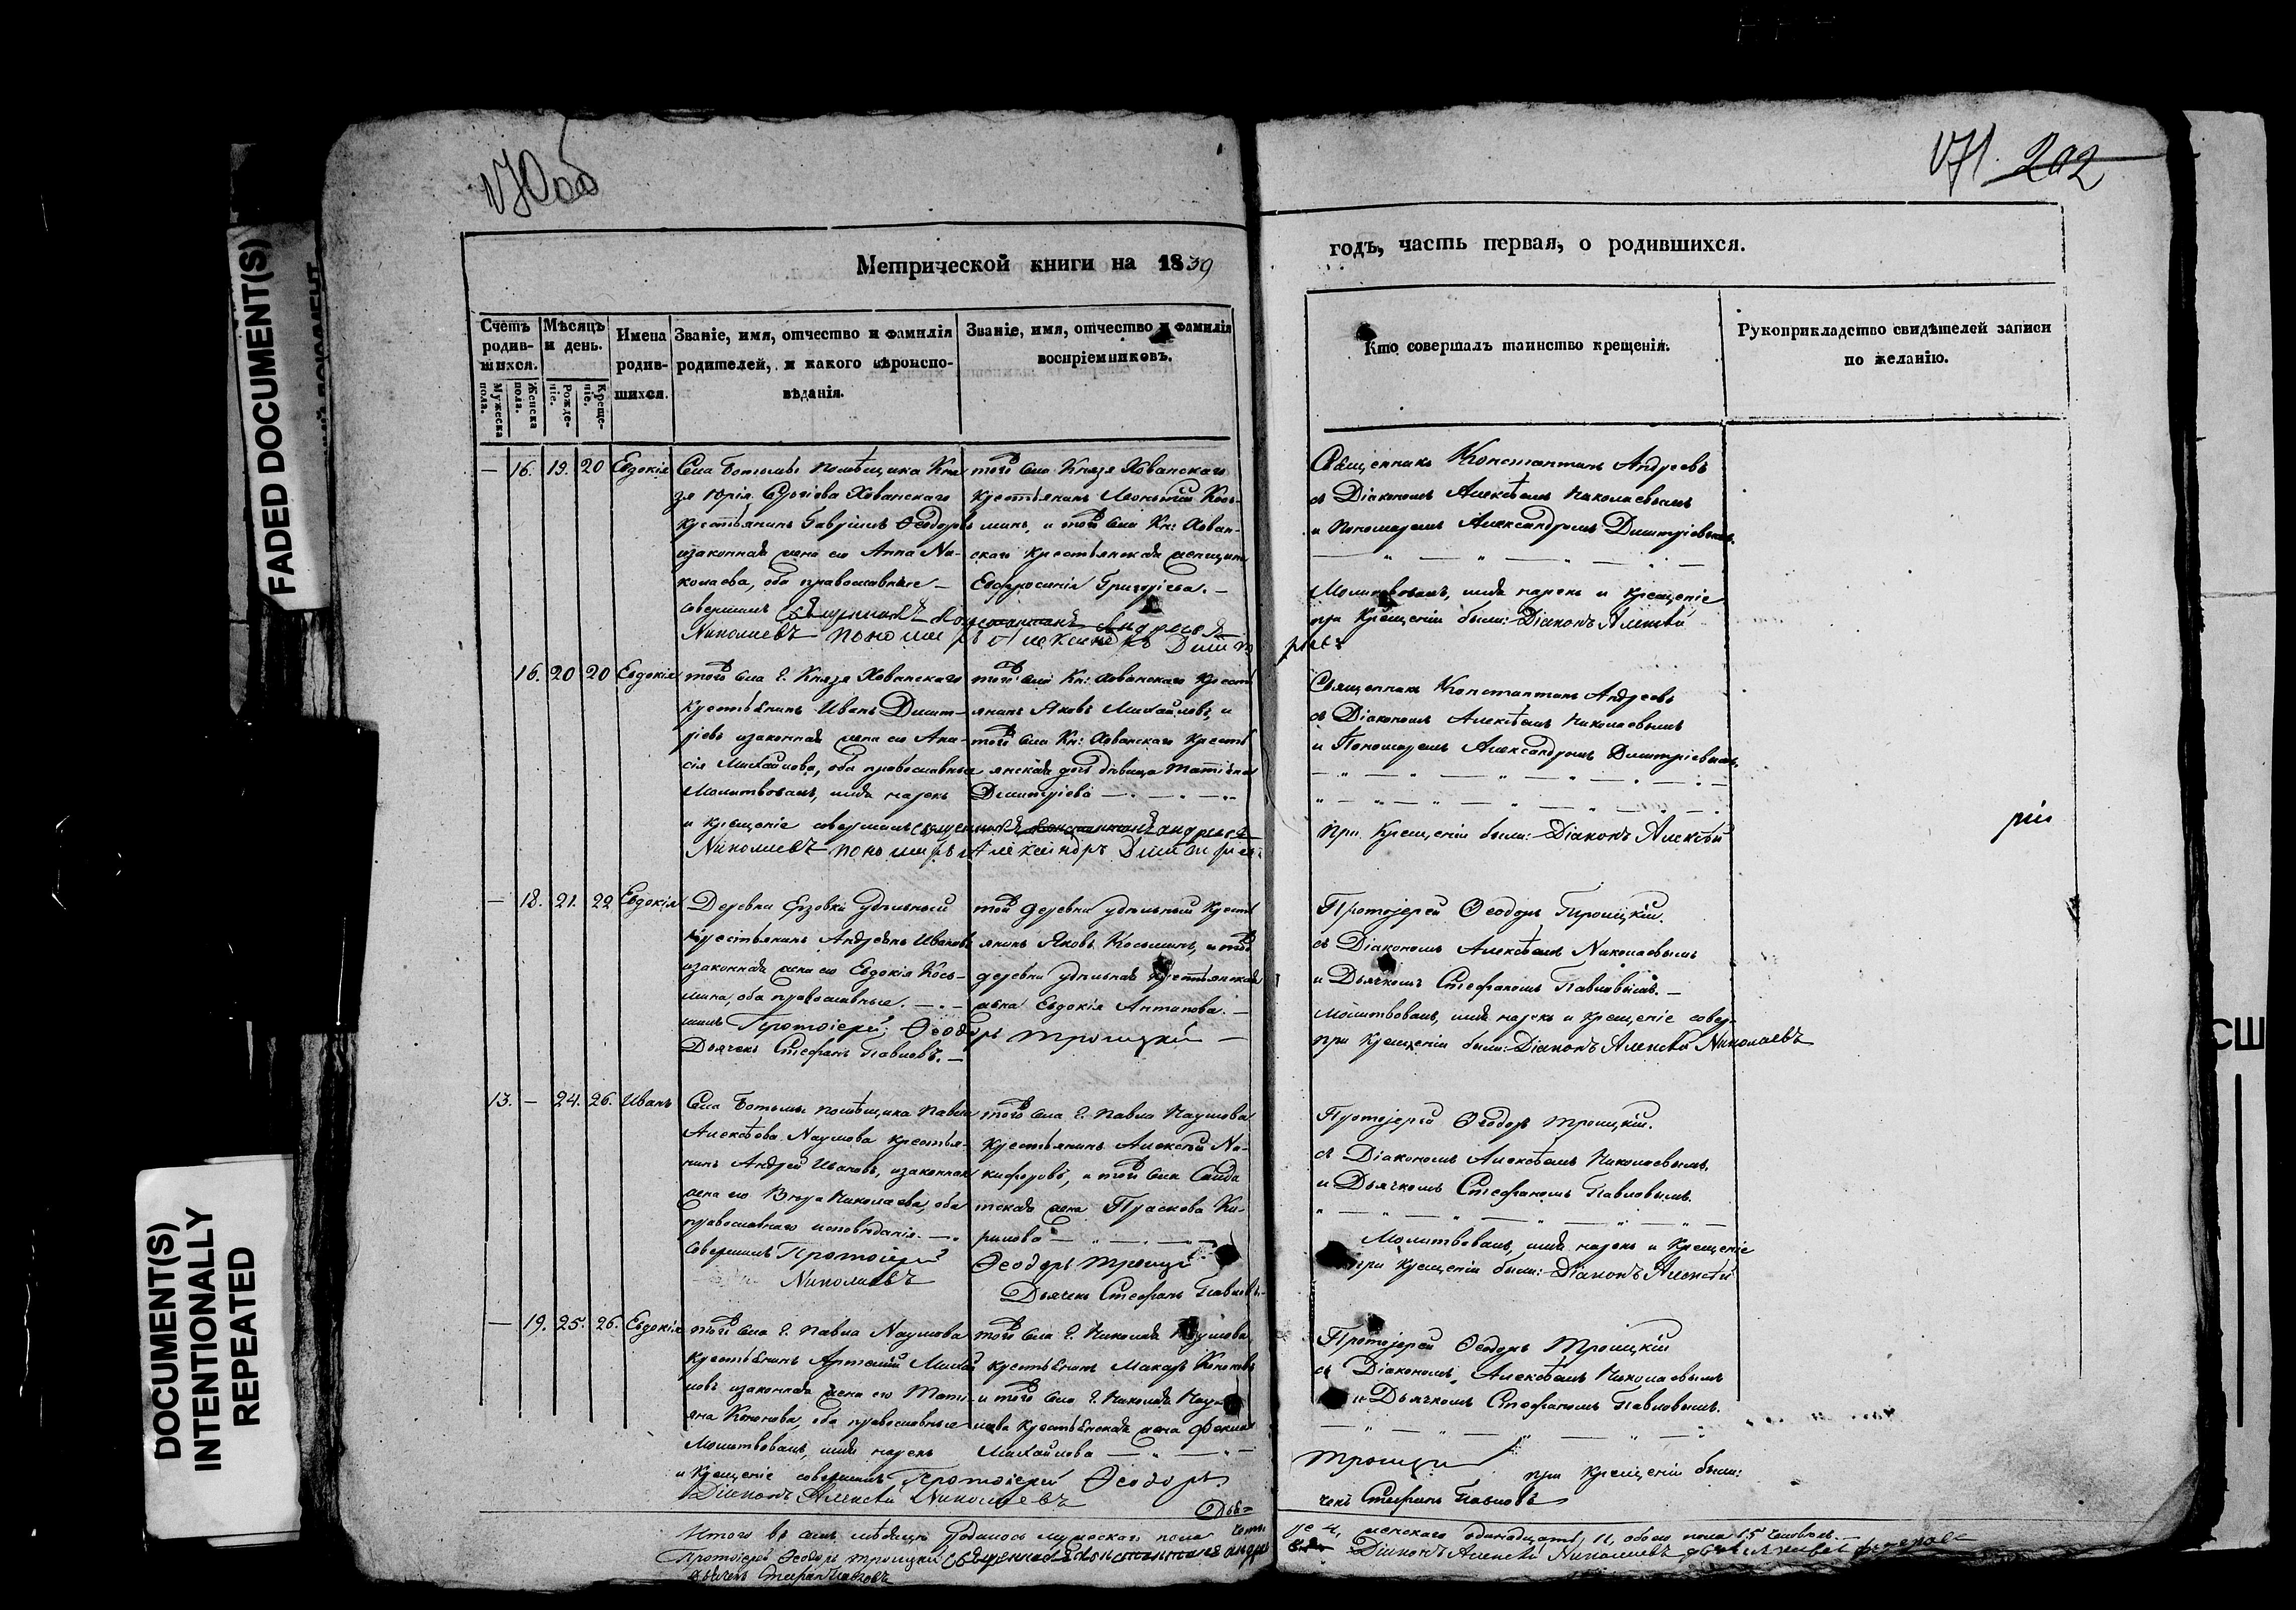 170об
171. 202
FADED DOCUMENT(S)
DOCUMENT(S)
INTENTIONALLY
REPEATED
Метрической книги на 1839
годъ, часть первая, о родившихся.
Счетъ родив-шихся.
Мужеска пола.
Женска пола.
Мѣсяцъ и день.
Рожде-ніе.
Креще-ніе.
Имена родив-шихся.
Званіе, имя, отчество и фамилія
родителей, и какого вѣроиспо-
вѣданія.
Званіе, имя, отчество и фамилія
воспріемниковъ.
Кто совершалъ таинство крещенія.
Рукоприкладство свидѣтелей записи
по желанію.
— 16. 19. 20 Евдокія
Села Ботьмы помѣщика Кня-
зя Юрія Сергіева Хованскаго
крестьянинъ Гавріилъ Ѳеодоровъ
и законная жена его Анна Ни-
колаева, оба православные —
совершилъ Священникъ Константинъ Андреевъ
Николаевъ пономарь Александръ Димит
того села Князя Хованскаго
крестьянинъ Леонтій Кось-
минъ, и того села Кн: Хован-
скаго крестьянская женщина
Евфросинія Григорьева. —
Священникъ Константинъ Андреевъ
съ Діакономъ Алексѣемъ Николаевымъ
и Пономаремъ Александромъ Димитріевымъ.
Молитвовалъ, имя нарекъ и крещеніе
при Крещеніи были: Діаконъ Алексѣй
ріевъ
16. 20 20 Евдокія
того села г. Князя Хованскаго
крестьянинъ Иванъ Димит-
ріевъ и законная жена его Ана-
сія Михайлова, оба православные
Молитвовалъ, имя нарекъ
и крещеніе совершилъ священникъ Константинъ Андреевъ
Николаевъ пономарь Александръ Димитріев
того села Кн: Хованскаго крестья
янинъ Яковъ Михайловъ, и
того села Кн: Хованскаго кресть
янская дочь дѣвица Татіяна
Димитріева
Священникъ Константинъ Андреевъ
съ Діакономъ Алексѣемъ Николаевымъ
и Пономаремъ Александромъ Димитріевымъ.
при Крещеніи были: Діаконъ Алексѣй
— 18. 21. 22 Евдокія
Деревни Ерзовки удѣльный
крестьянинъ Андреянъ Ивановъ
и законная жена его Евдокія Кось-
мина, оба православные. —
шилъ Протоіерей Ѳеодоръ Троицкій —
Дьячекъ Стефанъ Павловъ. —
той деревни удѣльный кресть
янинъ Яковъ Косьминъ, и той
деревни удѣльная крестьянская
жена Евдокія Антипова. —
Протоіерей Ѳеодоръ Троицкій.
съ Діакономъ Алексѣемъ Николаевымъ
и Дьячкомъ Стефаномъ Павловымъ. —
Молитвовалъ, имя нарекъ и крещеніе совер-
при Крещеніи были: Діаконъ Алексѣй Николаевъ
13. — 24. 26. Иванъ
Села Ботьмы помѣщика Павла
Алексѣева Наумова крестья-
нинъ Андрей Ивановъ, и законная
жена его Вѣра Николаева, оба
православнаго исповѣданія. —
совершилъ Протоіерей
Николаевъ
того села г. Павла Наумова
крестьянинъ Алексѣй Ни-
кифоровъ, и того села Солда
тская жена Праскова Ки-
рилова —
Ѳеодоръ Троицкій
Дьячекъ Стефанъ Павловъ
Протоіерей Ѳеодоръ Троицкій.
съ Діакономъ Алексѣемъ Николаевымъ,
и Дьячкомъ Стефаномъ Павловымъ.
Молитвовалъ, имя нарекъ и Крещеніе
при Крещеніи были: Діаконъ Алексѣй
— 19. 25. 26. Евдокія
того села г. Павла Наумова
крестьянинъ Артемій Михай
ловъ и законная жена его Тати-
яна Кононова, оба православные
Молитвовалъ, имя нарекъ
и крещеніе совершилъ Протоіерей Ѳеодоръ
Діаконъ Алексѣй Николаевъ
того села г. Николая Наумова
крестьянинъ Макаръ Кононовъ
и того села г. Николая Нау-
мова крестьянская жена Ѳекла
Михайлова —
Дья-
Протоіерей Ѳеодоръ Троицкій
съ Діакономъ, Алексѣемъ Николаевымъ
и Дьячкомъ Стефаномъ Павловымъ.
Троицкій
при крещеніи были:
чекъ Стефанъ Павловъ
Итого въ семъ мѣсяцѣ родилось мужескаго пола четы
ре 4, женскаго одинадцать 11, обоего пола 15 человѣкъ.
Протоіерей Ѳеодоръ Троицкій Священникъ Константинъ Андре
Діаконъ Алексѣй Николаевъ
Дьячекъ Стефанъ Павловъ